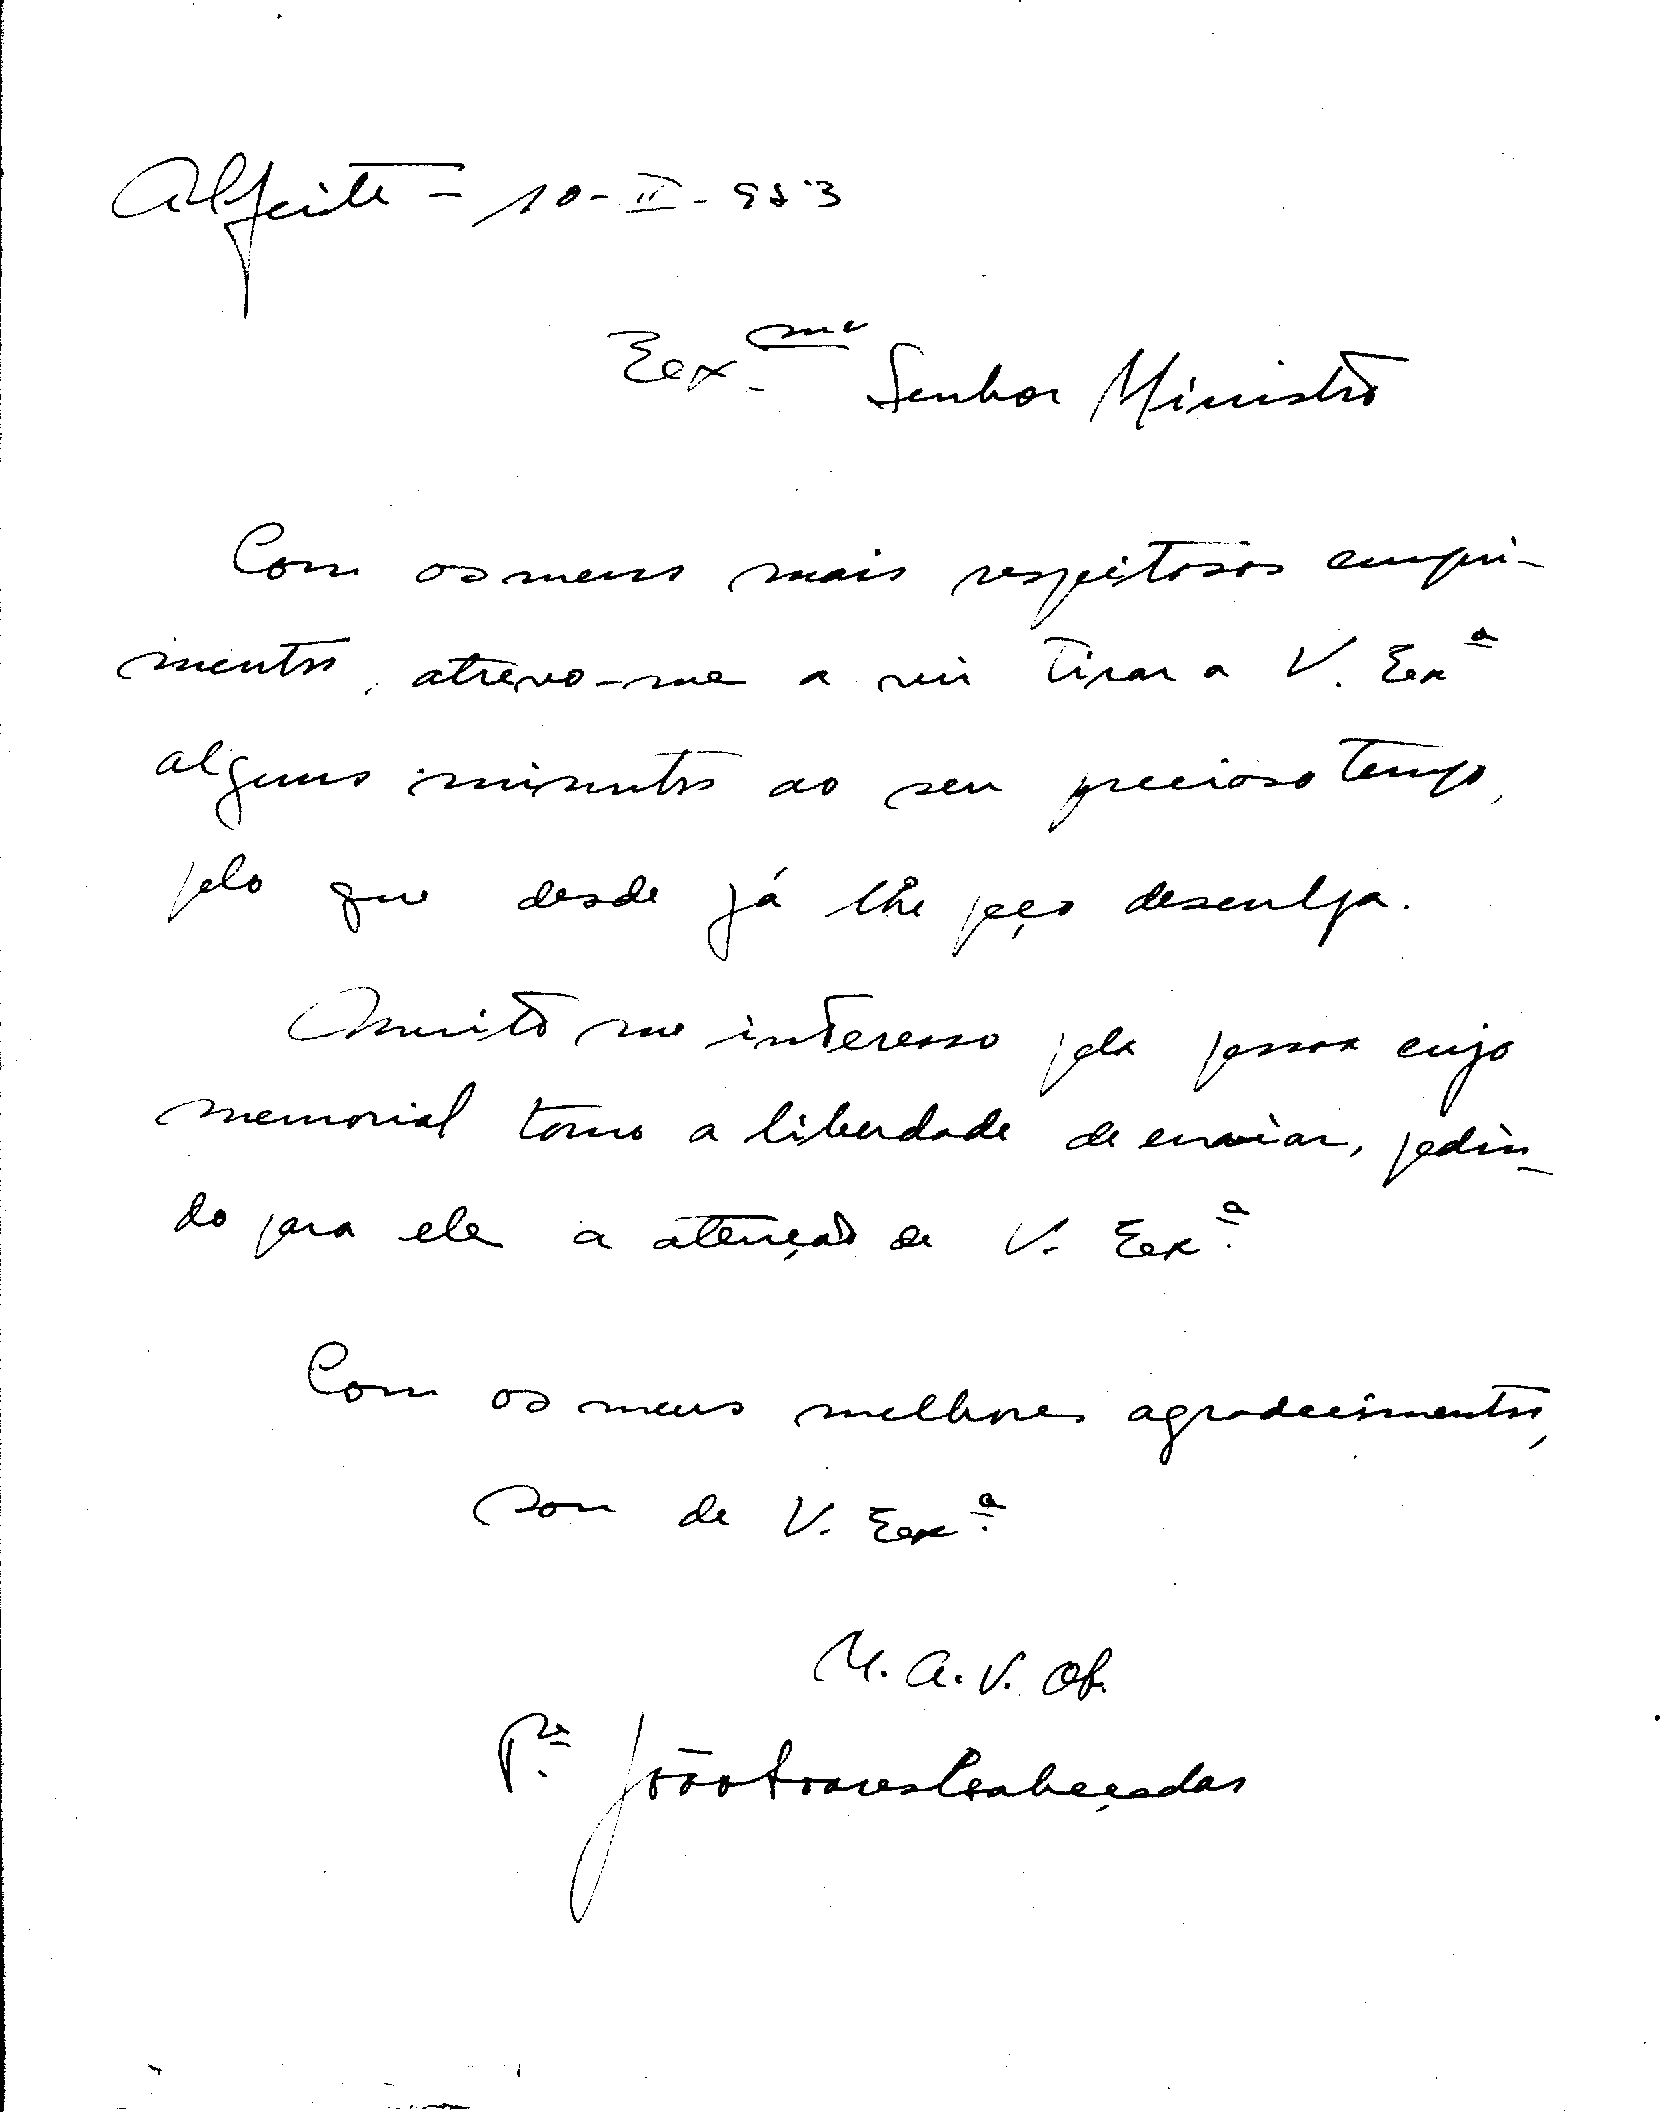 Alfeite - 10-II-953
Ex.mo Senhor Ministro
Com os meus mais respeitosos cumpri-
mentos, atrevo-me a vir tirar a V. Exª
alguns minutos ao seu precioso tempo,
pelo que desde já lhe peço desculpa.
Muito me interesso pela pessoa cujo
memorial tomo a liberdade de enviar, pedin-
do para ele a atenção de V. Ex.ª
Com os meus melhores agradecimentos,
sou de V. Ex.ª
M. A. V. Ob.
P.e João Soares Cabeçadas